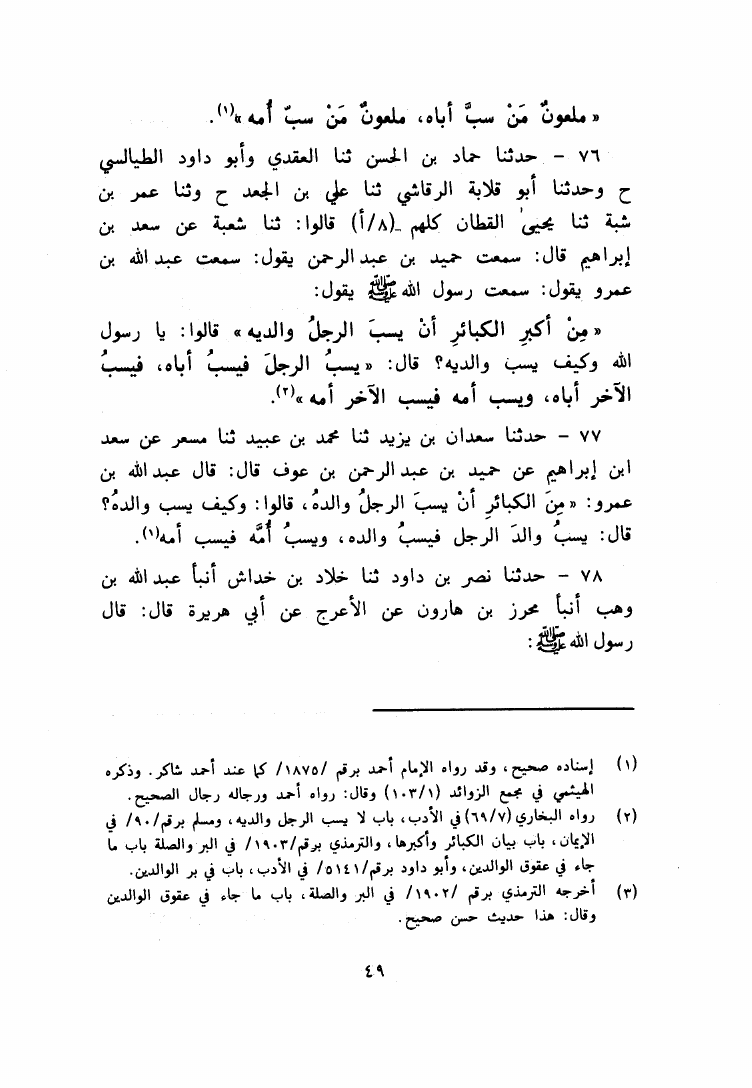 « ملعونٌ مَنْ سبَّ أباه، ملعونٌ مَنْ سبّ أُمه »(١).
٧٦ – حدثنا حماد بن الحسن ثنا العقدي وأبو داود الطيالسي
ح وحدثنا أبو قلابة الرقاشي ثنا علي بن الجعد ح وثنا عمر بن
شبة ثنا يحيىٰ القطان كلهم _(٨/أ) قالوا: ثنا شعبة عن سعد بن
إبراهيم قال: سمعت حميد بن عبد الرحمن يقول: سمعت عبد الله بن
عمرو يقول: سمعت رسول الله ﷺ يقول:
« مِنْ أكبرِ الكبائرِ أنْ يسبَ الرجلُ والديه » قالوا: يا رسول
الله وكيف يسب والديه؟ قال: « يسبُ الرجلَ فيسبُ أباه، فيسبُ
الآخر أباه، ويسب أمه فيسب الآخر أمه »(٢).
٧٧ – حدثنا سعدان بن يزيد ثنا محمد بن عبيد ثنا مسعر عن سعد
ابن إبراهيم عن حميد بن عبد الرحمن بن عوف قال: قال عبد الله بن
عمرو: « مِنَ الكبائرِ أنْ يسبَ الرجلُ والدهُ، قالوا: وكيف يسب والدهُ؟
قال: يسبُ والدَ الرجل فيسبُ والده، ويسبُ أُمَّه فيسب أمه(١).
٧٨ – حدثنا نصر بن داود ثنا خلاد بن خداش أنبأ عبد الله بن
وهب أنبأ محرز بن هارون عن الأعرج عن أبي هريرة قال: قال
رسول الله ﷺ:
(١) إسناده صحيح، وقد رواه الإمام أحمد برقم /١٨٧٥/ كما عند أحمد شاكر. وذكره
الهيثمي في مجمع الزوائد (١٠٣/١) وقال: رواه أحمد ورجاله رجال الصحيح.
(٢) رواه البخاري (٦٩/٧) في الأدب، باب لا يسب الرجل والديه، ومسلم برقم/٩٠/ في
الإيمان، باب بيان الكبائر وأكبرها، والترمذي برقم/١٩٠٣/ في البر والصلة باب ما
جاء في عقوق الوالدين، وأبو داود برقم/٥١٤١/ في الأدب، باب في بر الوالدين.
(٣) أخرجه الترمذي برقم /١٩٠٢/ في البر والصلة، باب ما جاء في عقوق الوالدين
وقال: هذا حديث حسن صحيح.
٤٩